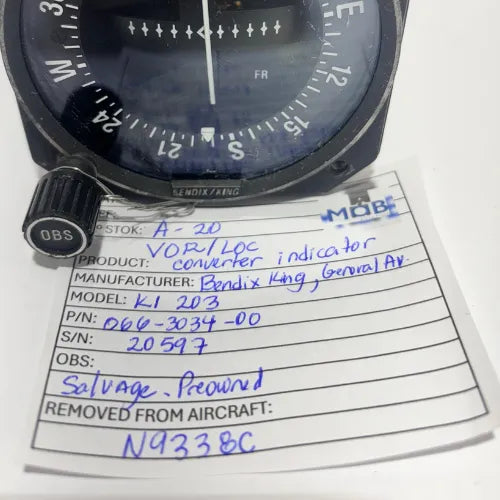 3
W
24
21
S
15
12
E
FR
BENDIX/KING
OBS
MOB
STOK: A-20
VOR/LOC
PRODUCT: converter indicator
MANUFACTURER: Bendix King, General AV.
MODEL: KI 203
P/N: 066-3034-00
S/N: 20597
OBS:
Salvage. Preowned
REMOVED FROM AIRCRAFT:
N9338C